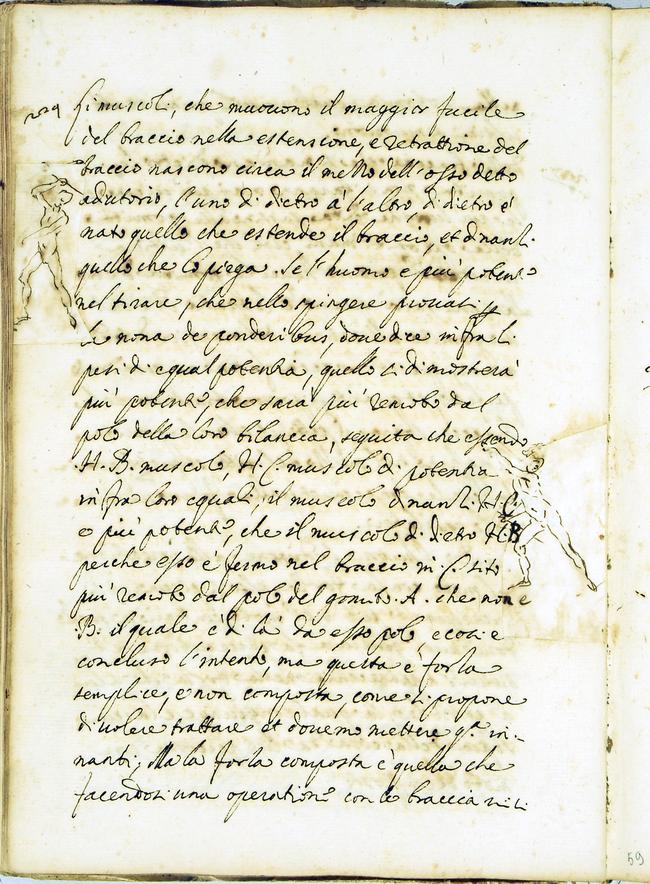 Li muscoli, che muouono il maggior fucile
del braccio nella estensione, e retrattione del
braccio nascono circa il mezzo dell'osso detto
adiutorio, l'uno di dietro à l'altro, di dietro é
nato quello che estende il braccio, et dinanzi
quello che lo piega. Se l'huomo e più potente
nel tirare, che nello spingere prouasi
la nona de ponderibus, doue dice infra li
pesi di equal potentia, quello si dimostrerà
più potente, che sarà più remoto dal
polo della loro bilancia, seguita che essendo
.N. B. muscolo, N. C. muscolo di potentia
infra loro equali, il muscolo dinanzi. N. C.
e più potente, che il muscolo di dietro N. B
perche esso é fermo nel braccio in. C sito
più remoto dal polo del gomito. A. che none
.B. il quale é di là da esso polo, e cosi e
concluso l'intento, ma questa é forza
semplice, e non composta, come si propone
di uolere trattare et douemo mettere q.a in-
nanti; Ma la forza composta é quella che
facendosi una operatione con le braccia ui si
59